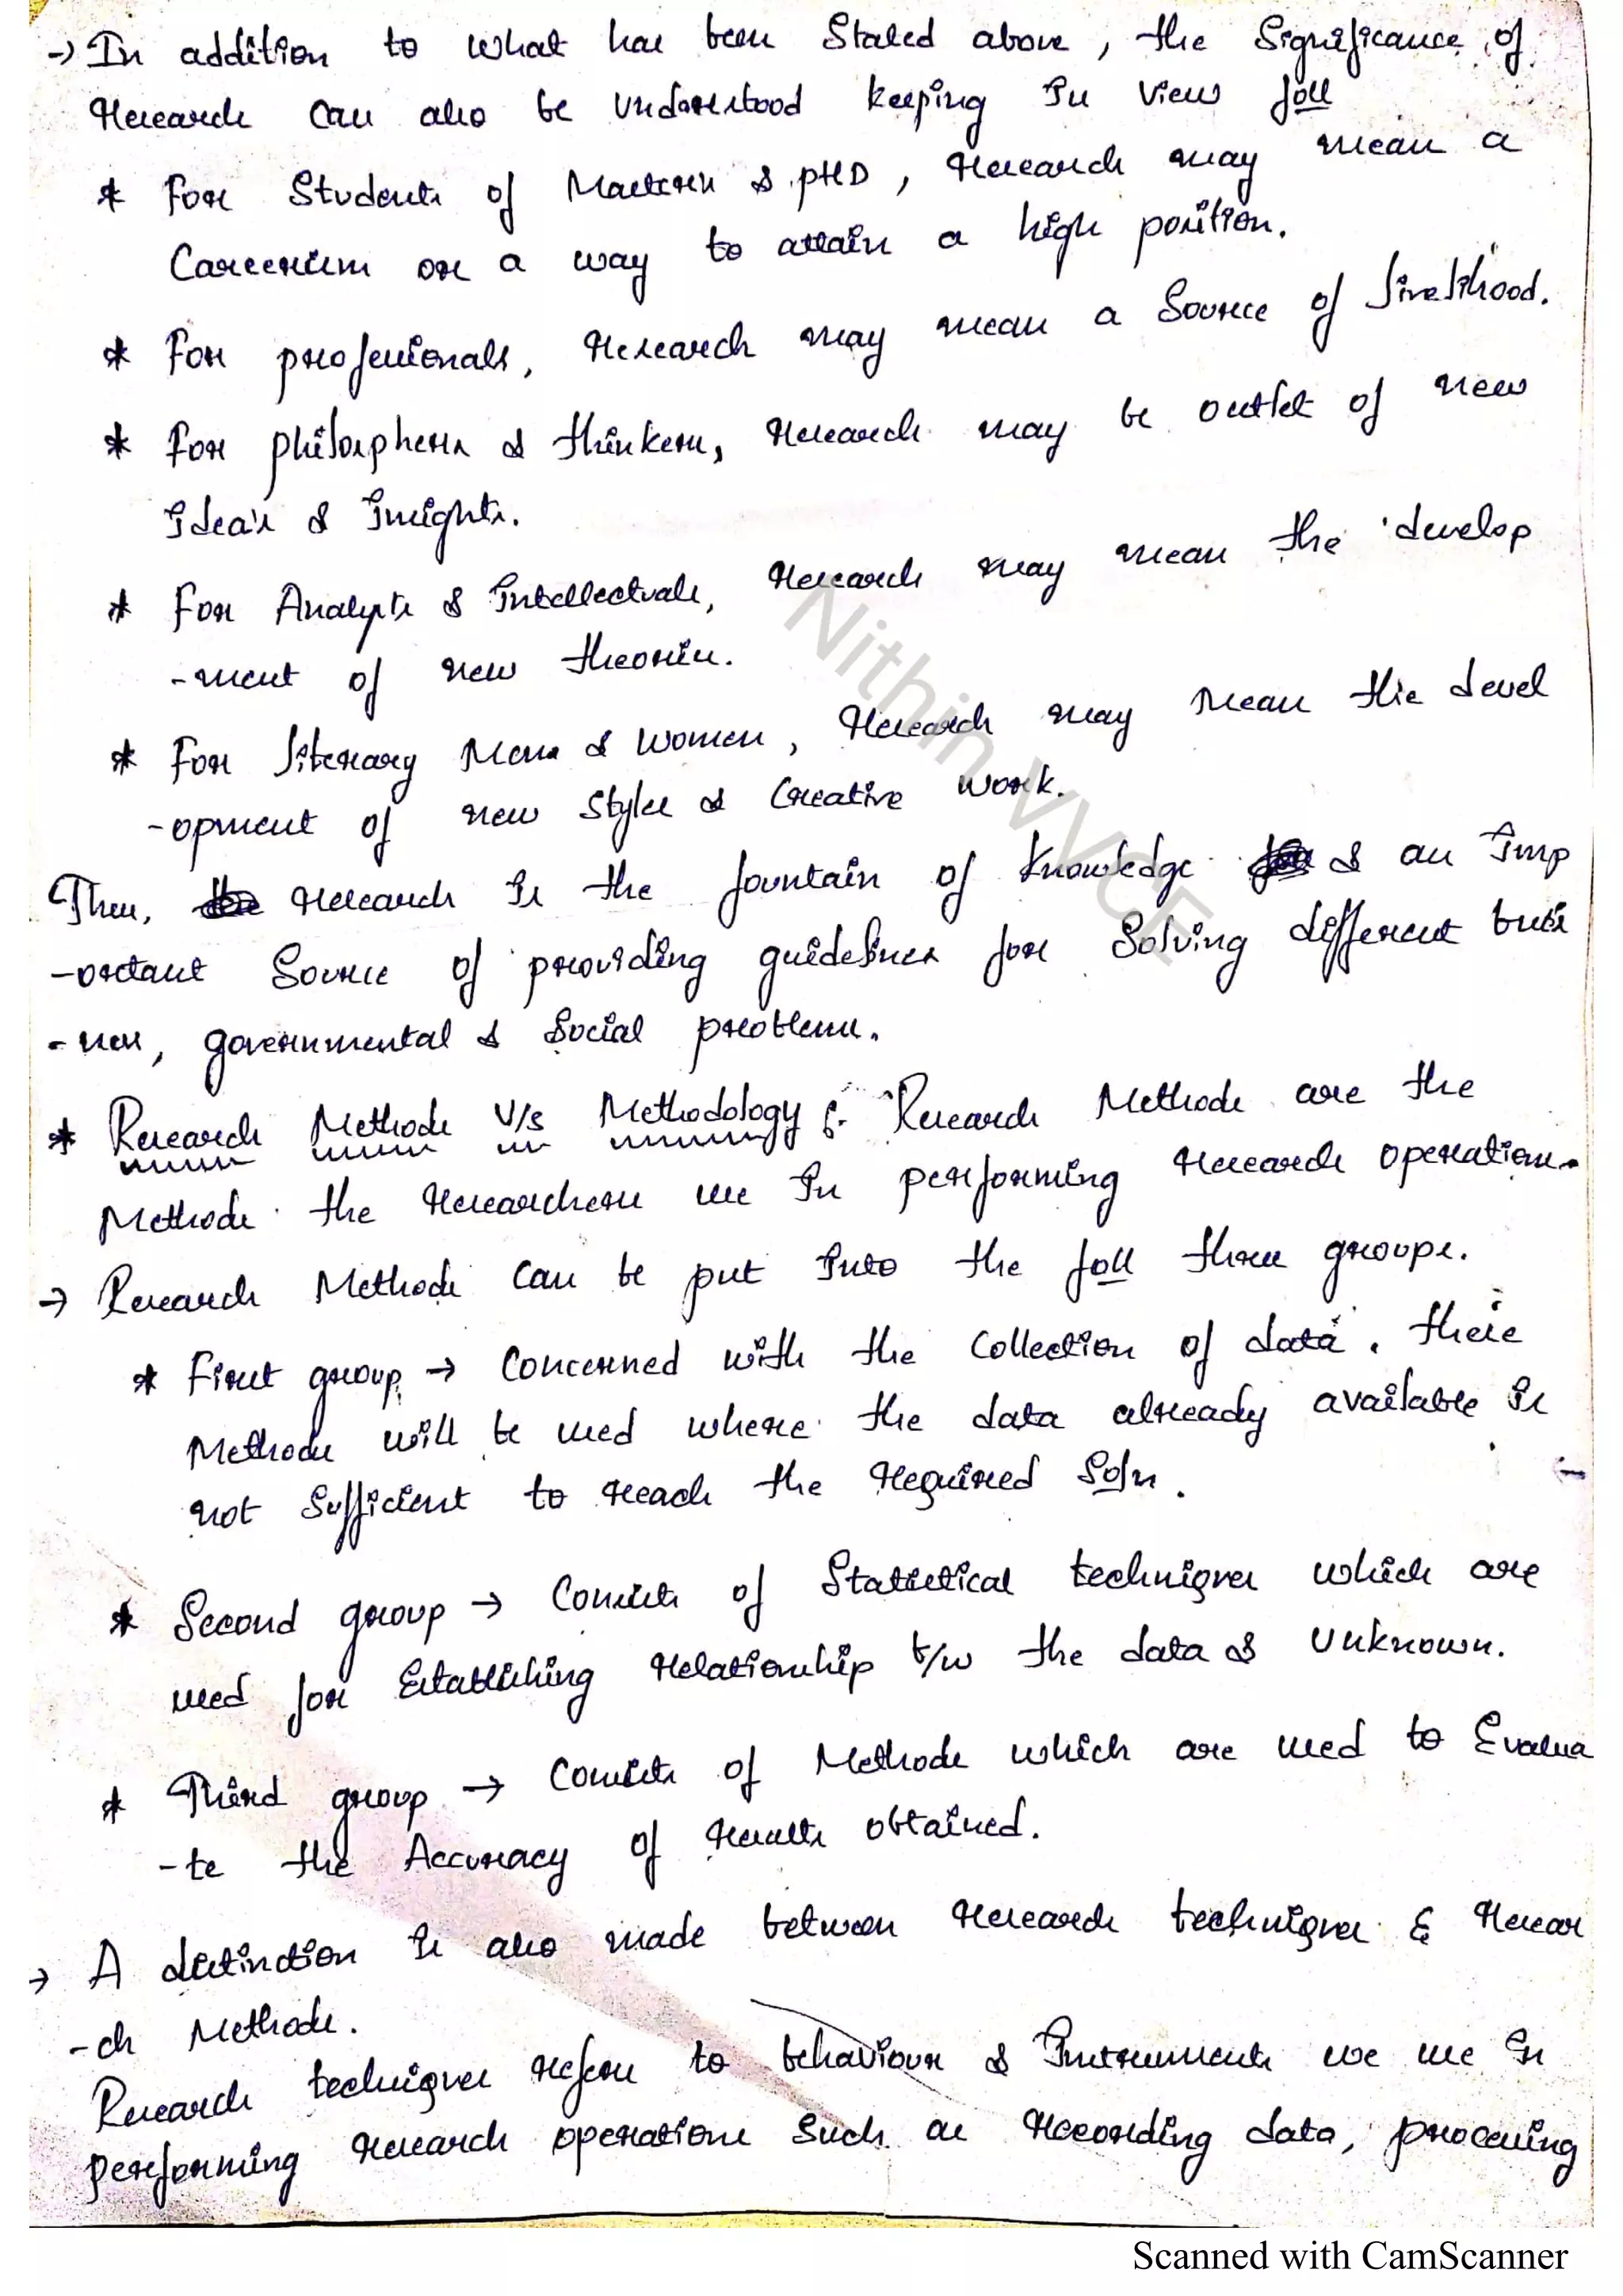 → In addition to what has been stated above, the Significance of
research can also be understood keeping in view foll
* For Students of Masters & pHD, research may mean a
Careerism or a way to attain a high position.
* For professionals, research may mean a Source of livelihood.
* For philosphers & thinkers, research may be outlet of new
Idea's & Insights.
* For Analysts & Intellectuals, research may mean the develop
-ment of new theories.
* For literary Mens & women, research may mean the devel
-opment of new Styles & Creative work.
Thus, research is the fountain of knowledge & an Imp
-ortant Source of providing guidelines for Solving different busi
-ness, governmental & Social problems.
* Research Methods V/s Methodology :- Research Methods are the
Methods the researchers use in performing research operations.
→ Research Methods can be put into the foll three groups.
* First group → Concerned with the collection of data. these
Methods will be used where the data already available is
not Sufficient to reach the required Soln.
* Second group → Consists of Statistical techniques which are
used for Establishing relationship b/w the data & Unknown.
* Third group → Consists of Methods which are used to Evalua
-te the Accuracy of results obtained.
→ A distinction is also made between research techniques & resear
-ch Methods.
Research techniques refers to behaviour & Instruments we use in
performing research operations Such as recording data, processing
Nithin VVCE
Scanned with CamScanner